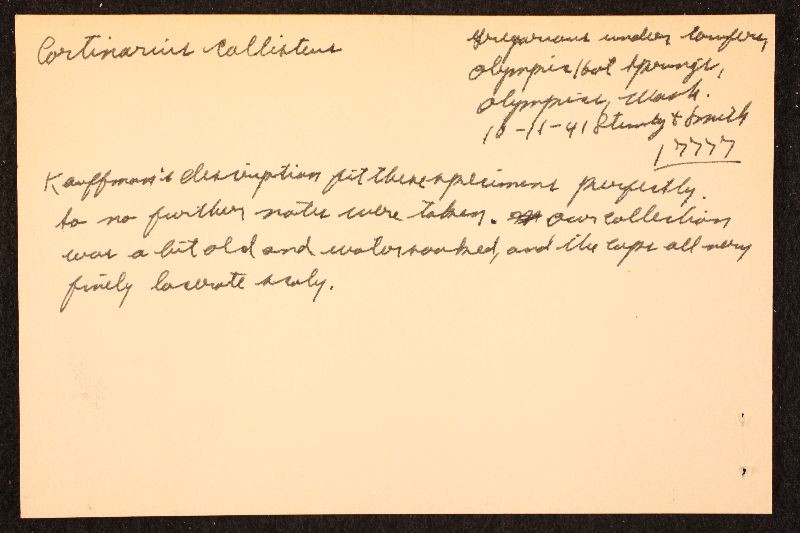 Cortinarius callisteus
Gregarious under conifers,
Olympic Hot Springs,
Olympics, Wash.
10-11-41 Stuntz & Smith
17777
Kauffman's description fit these specimens perfectly.
so no further notes were taken. our collection
was a bit old and watersoaked, and the caps all very
finely lacerate scaly.